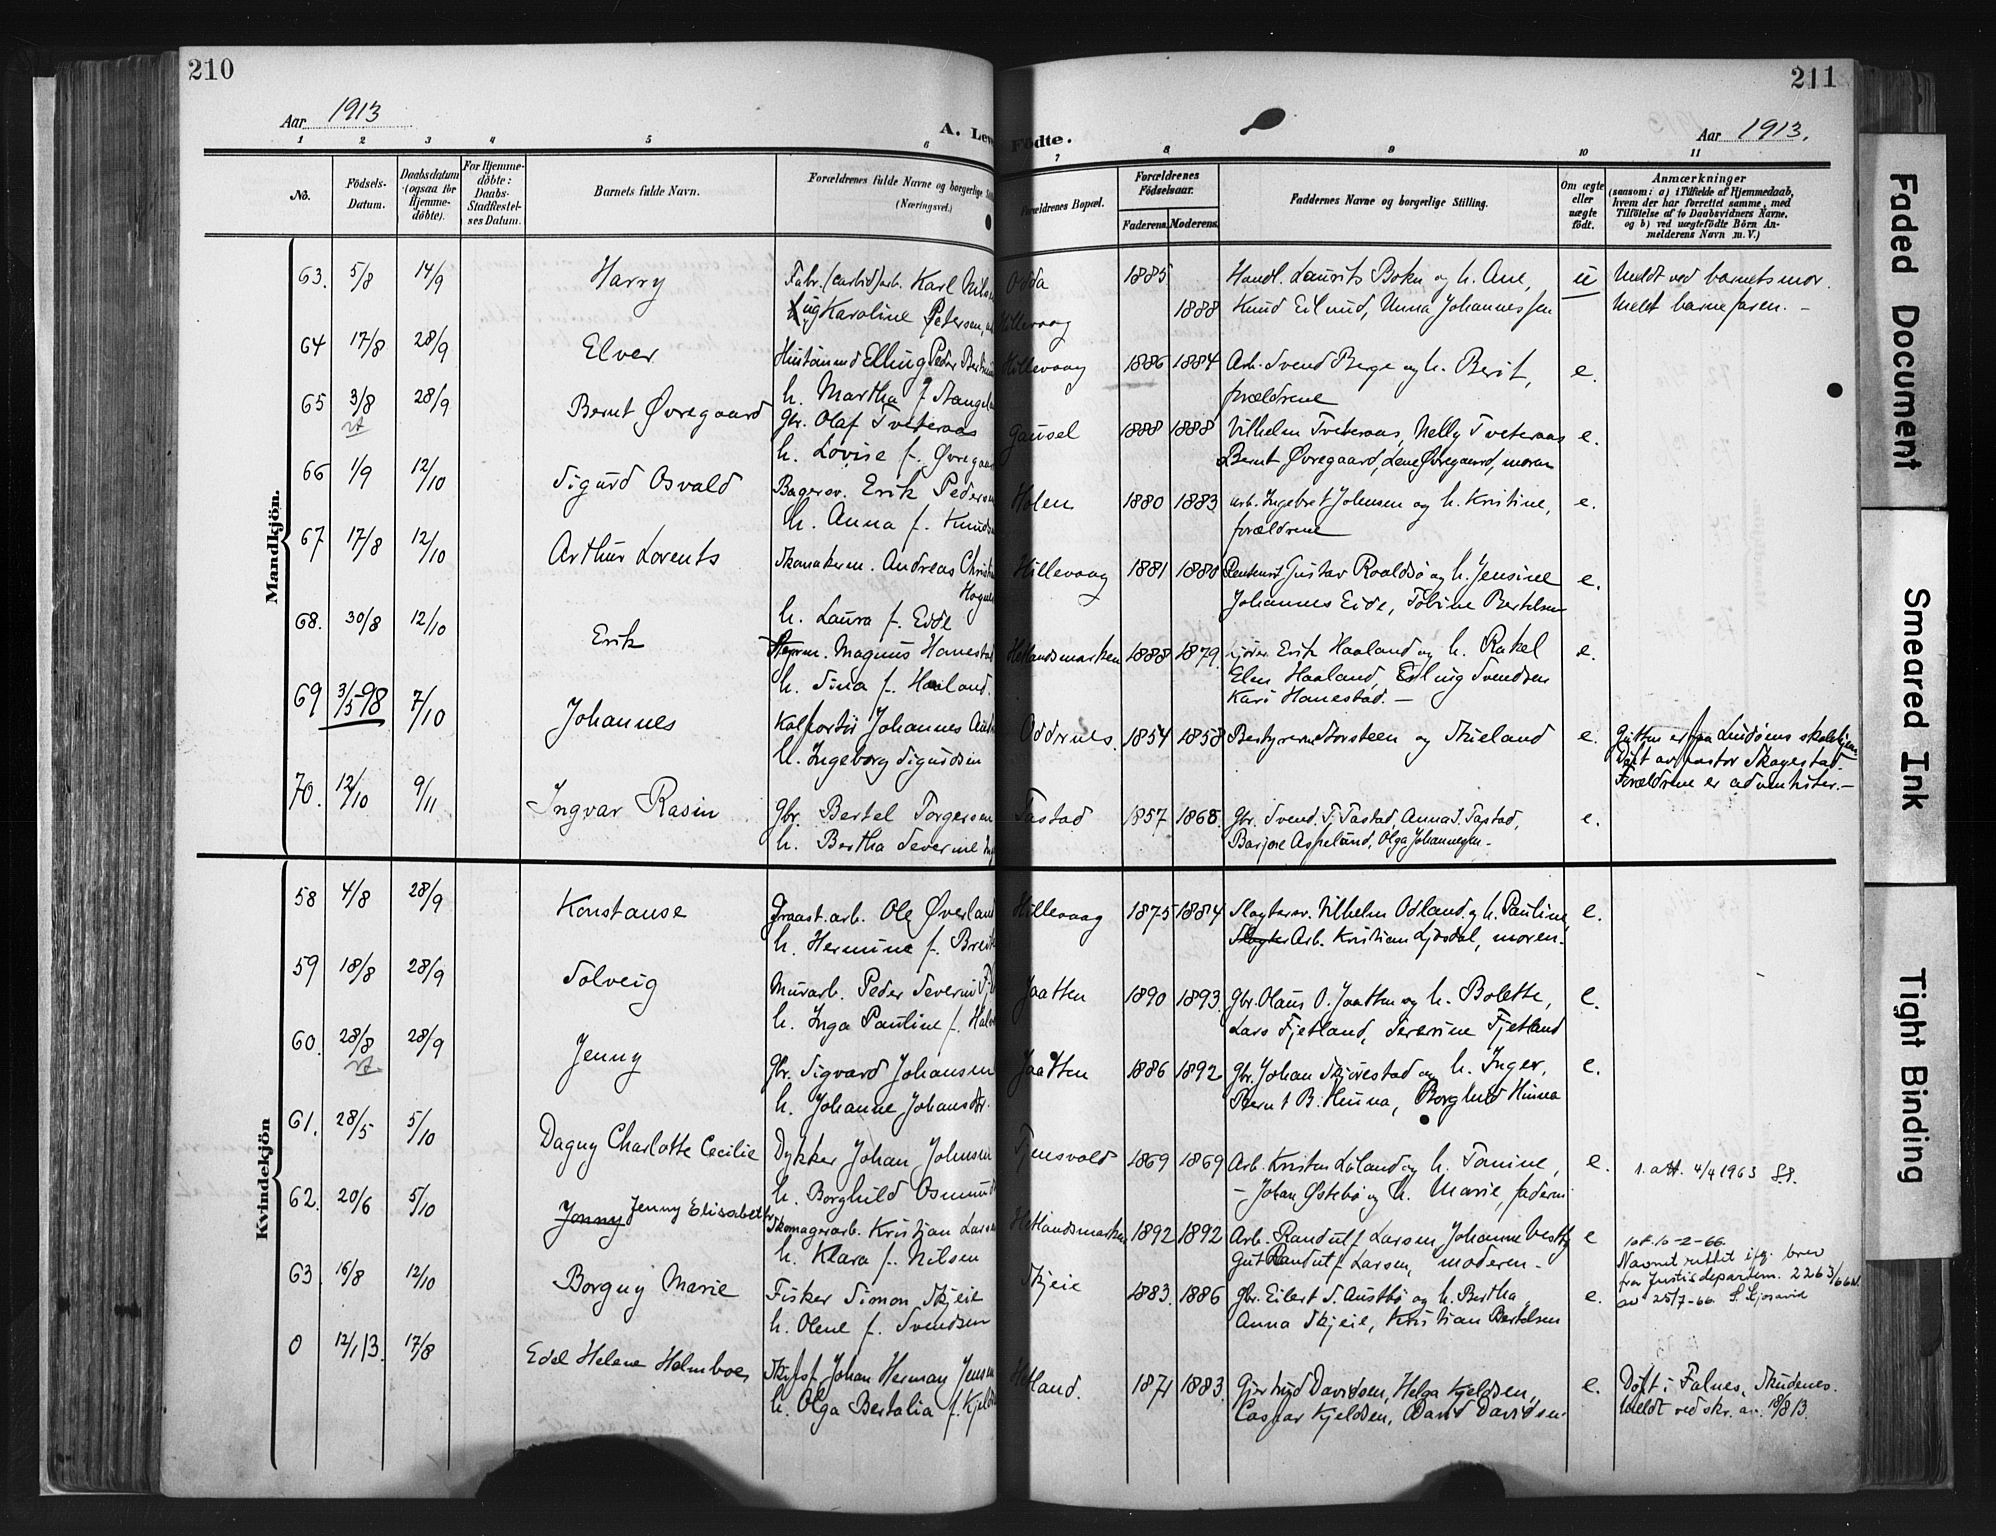 210
211
Aar 1913
A. Lev
Födte.
Aar 1913.
1 2 3 4 5 6 7 8 9 10 11
No.
Födsels-
Datum.
Daabsdatum
(ogsaa for
Hjemme-
döbte).
For Hjemme-
döbte:
Daabs-
Stadfæstel-
ses Datum.
Barnets fulde Navn.
Forældrenes fulde Navne og borgerlige
(Næringsvei.)
Forældrenes Bopæl.
Forældrenes
Födselsaar.
Faderens. Moderens.
Faddernes Navne og borgerlige Stilling.
Om ægte
eller
uægte
födt.
Anmærkninger
(saasom: a) i Tilfælde af Hjemmedaab,
hvem der har forrettet samme, med
Tilföielse af to Daabsvidners Navne,
og b) ved uægtefödte Börn An-
melderens Navn m. V.)
Mandkjön.
63. 5/8 14/9 Harry Fabr. (carbid) arb. Karl Nils Odda 1885 Handl. Laurits Bokn og h. Ane, u Meldt ved barnets mor.
ug Karoline Petersen, Hillevaag 1888 Knud Eilund, Unna Johannessen Meldt barnefaren. -
64 17/8 28/9 Elver Elling Peder Hillevaag 1886 1884 Arb. Svend Berge og h. Berit, e.
h. Martha f. Stangel forældrene
65 3/8 28/9 Bernt Øvregaard gbr. Olaf Tveteraas Gausel 1888 1888 Vilhelm Tveteraas, Nelly Tveteraas e.
h. Lovise f. Øvregaa Bernt Øvregaard, Lene Øvregaard, moren
66 1/9 12/10 Sigurd Osvald Bagersv. Erik Peders Holen 1880 1883 arb. Ingebret Johnsen og h. Kristine, e.
h. Anna f. Knuds forældrene
67 17/8 12/10 Arthur Lorents Skomakerm. Andreas Christi Hillevaag 1881 1880 Gustav Roaldsø og h. Jensine e.
Hogne
h. Laura f. Eide Johannes Eide, Tobine Bertelsen
68. 30/8 12/10 Erik Magnus Hanestad Hetlandsmarken 1888 1879. Erik Haaland og h. Rakel e.
h. Sina f. Haaland. Elen Haaland, Edling Svendsen
Kari Hanestad. -
69 3/5-98 7/10 Johannes Kolportør Johannes Oddernes. 1854 1858 Bestyrerne Torsteen og Skieland e. Gutten er fra Lindøens skolehjem
h. Ingeborg Sigurdsen Døpt av pastor Skagestad.
Forældrene er adventister. -
70. 12/10 9/11 Ingvar Rasin Gbr. Bertel Torgersen Tastad 1857 1868. Gbr. Svend. T. Tastad, Anna T. Tastad, e.
h. Bertha Severine Aspeland, Olga Johannessen -
Kvindekjön
58 4/8 28/9 Konstanse Graast. arb. Ole Øverland Hillevaag 1875 1884 Slagtersv. Vilhelm Odland og h. Pauline, e.
h. Hermine f. Breik Slagter Arb. Kristian Lysdal, moren -
59 18/8 28/9 Solveig Murarb. Peder Severin Jaatten 1890 1893. Gbr. Olaus O. Jaatten og h. Bolette, e.
h. Inga Pauline f. Halv Lars Fjetland, Severine Fjetland
60. 28/8 28/9 Jenny Gbr. Sigvard Johansen Jaatten 1886 1892 Gbr. Johan Skjørestad og h. Inger, e.
h. Johanne Johansdtr. Bernt B. Hinna, Borghild Hinna
61. 28/5 5/10 Dagny Charlotte Cecilie Dykker Johan Johnsen Tjensvold 1869 1869 Arb. Kristen Liland og h. Tomine, e. 1. att. 4/4 1963
h. Borghild Osmund - Johan Østebø og h. Marie, faderen
62. 20/6 5/10 Jenny Jenny Elisabeth Skomagerarb. Kristian Larsen Hetlandsmarken 1892 1892 Arb. Randulf Larsen, Johanne Vestby e 10-2-66.
h. Klara f. Nilsen Randulf Larsen, moderen - Navnet rettet ifg. brev
fra Justisdepartem. 2263/66
av 25/7-66.
63. 16/8 12/10 Borguy Marie Fisker Simon Skjeie Skjeie 1883. 1886 Gbr. Eilert S. Austbø og h. Bertha, e.
h. Olene f. Svendsen Anna Skjeie, Kristian Bertelsen
0 12/1 13. 17/8 Edel Helene Holmboe, Johan Herman Jensen Hetland. 1871 1883. Gjertrud Davidsen, Helga Kjeldsen, e. Døpt i Falnes, Skudenes.
h. Olga Bertalia f. Kjelds Caspar Kjeldsen, David Davidsen Meldt ved skr. av. 18/8 13.
Faded Document
Smeared Ink
Tight Binding